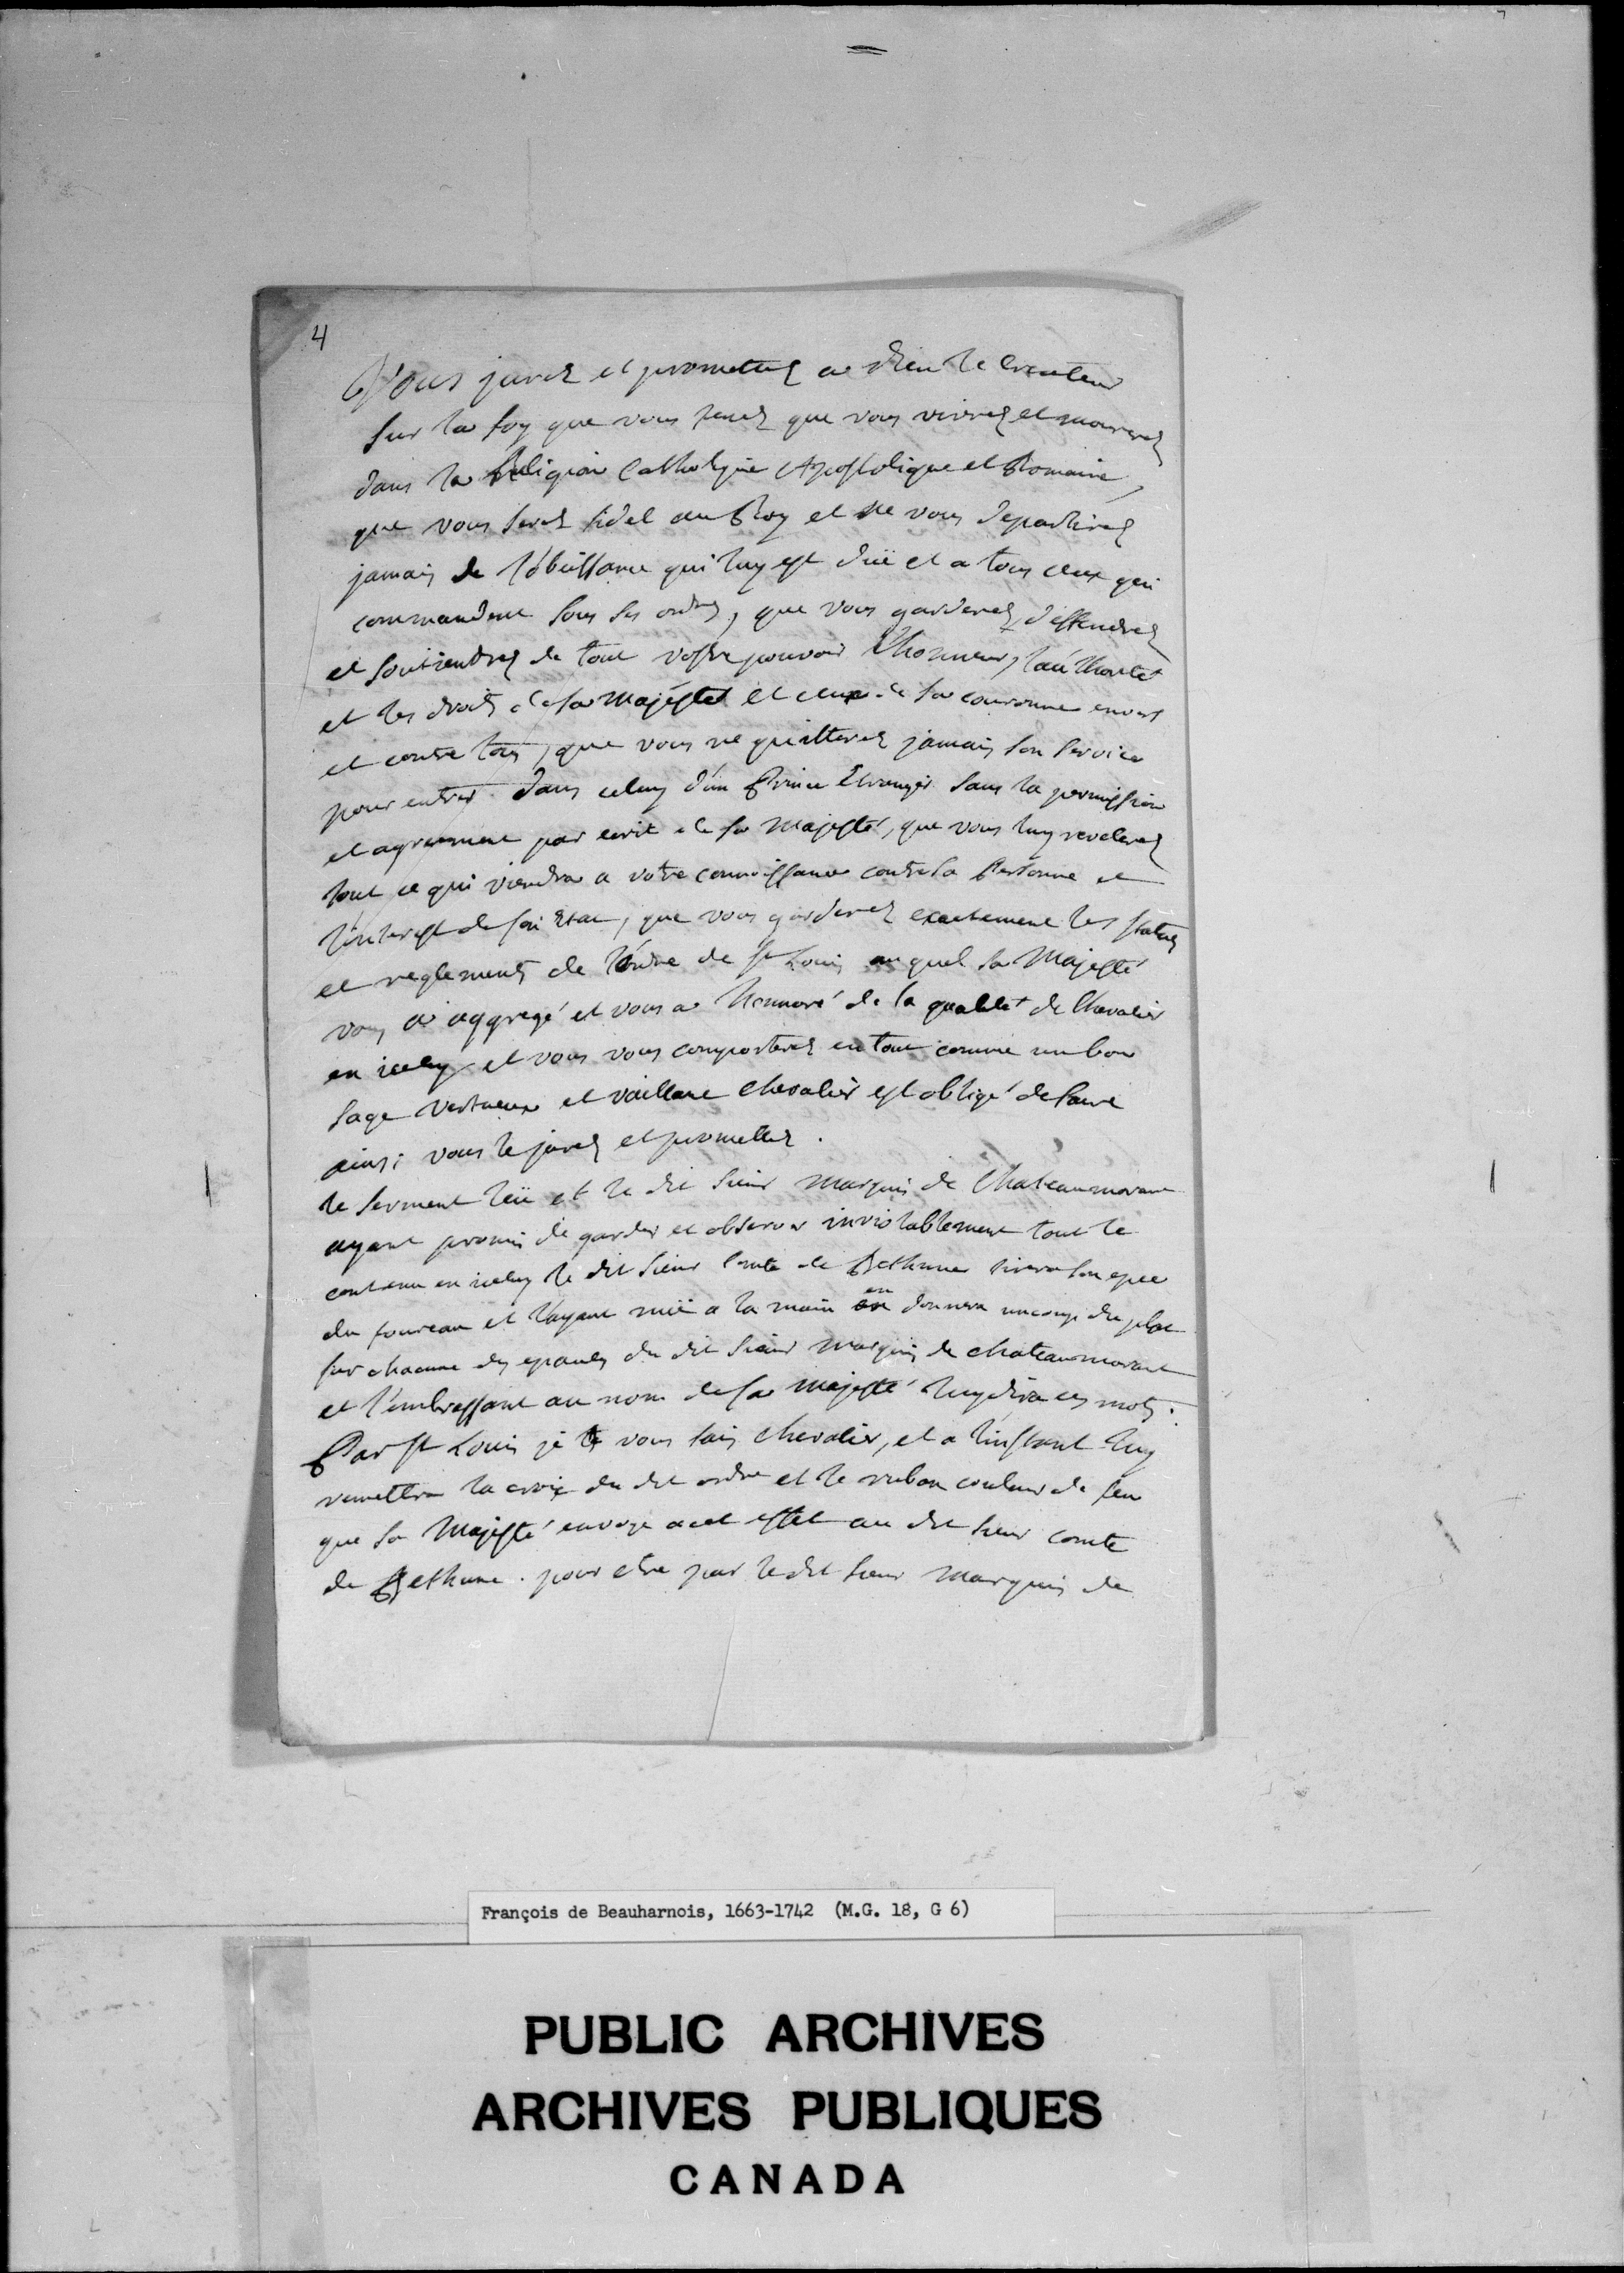 4
Vous jurez et promettez a Dieu le createur
sur la foy que vous tenez que vous vivrez et mourerez
dans la Religion Catholique Apostolique et Romaine,
que vous serez fidel au Roy et ne vous departirez
jamais de l'obeissance qui luy est düe et a tous ceux qui
commandent sous ses ordres, que vous garderez, deffendrez
et soutiendrez de tout vostre pouvoir l'honneur, l'authorité
et les droits de sa Majesté et ceux de sa couronne envers
et contre tous, que vous ne quitterez jamais son service
pour entrer dans celuy d'un Prince Etranger sans la permission
et agreement par ecrit de sa Majesté, que vous luy revelerez
tout ce qui viendra a votre connoissance contre sa Personne et
l'interest de son Etat, que vous garderez exactement les statuts
et reglements de l'ordre de St Louis auquel sa Majesté
vous a aggregé et vous a honnoré de la qualité de Chevalier
en iceluy et vous vous comporterez en tout comme un bon
sage vertueux et vaillant chevalier est obligé de faire
ainsi vous le jurez et promettez.
le serment leü et le dit sieur marquis de Chateaumorant
ayant promis de garder et observer inviolablement tout le
contenu en iceluy le dit sieur Comte de Bethune tirera son epée
du foureau et l'ayant nüe a la main en donnera un coup du plat
sur chacune des epaules du dit sieur marquis de chateaumorant
et l'embrassant au nom de sa majesté luy dira ces mots:
Par St Louis je vous fais chevalier, et a l'instant luy
remettra la croix du dit ordre et le ruban couleur de feu
que sa Majesté envoye a cet effet au dit sieur comte
de Bethune. pour etre par le dit sieur marquis de
François de Beauharnois, 1663-1742 (M.G. 18, G 6)
PUBLIC ARCHIVES
ARCHIVES PUBLIQUES
CANADA